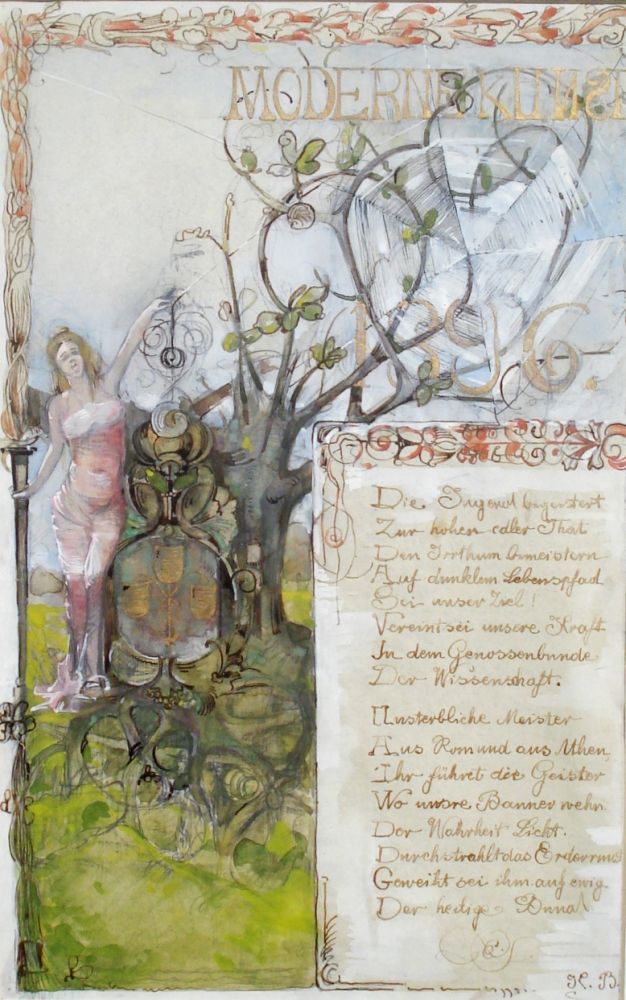 MODERNE KUNST
1896.
Die Jugend begeistert
Zur hohen edler That
Den Irrthum bemeistern
Auf dunklem Lebenspfad
Sei unser Ziel!
Vereint sei unsere Kraft
In dem Genossenbunde
Der Wissenschaft.
Unsterbliche Meister
Aus Rom und aus Athen,
Ihr führet die Geister
Wo unsre Banner wehn.
Der Wahrheit Licht.
Durchstrahlt das
Geweiht sei ihm auf ewig.
Der heilige
H. B.